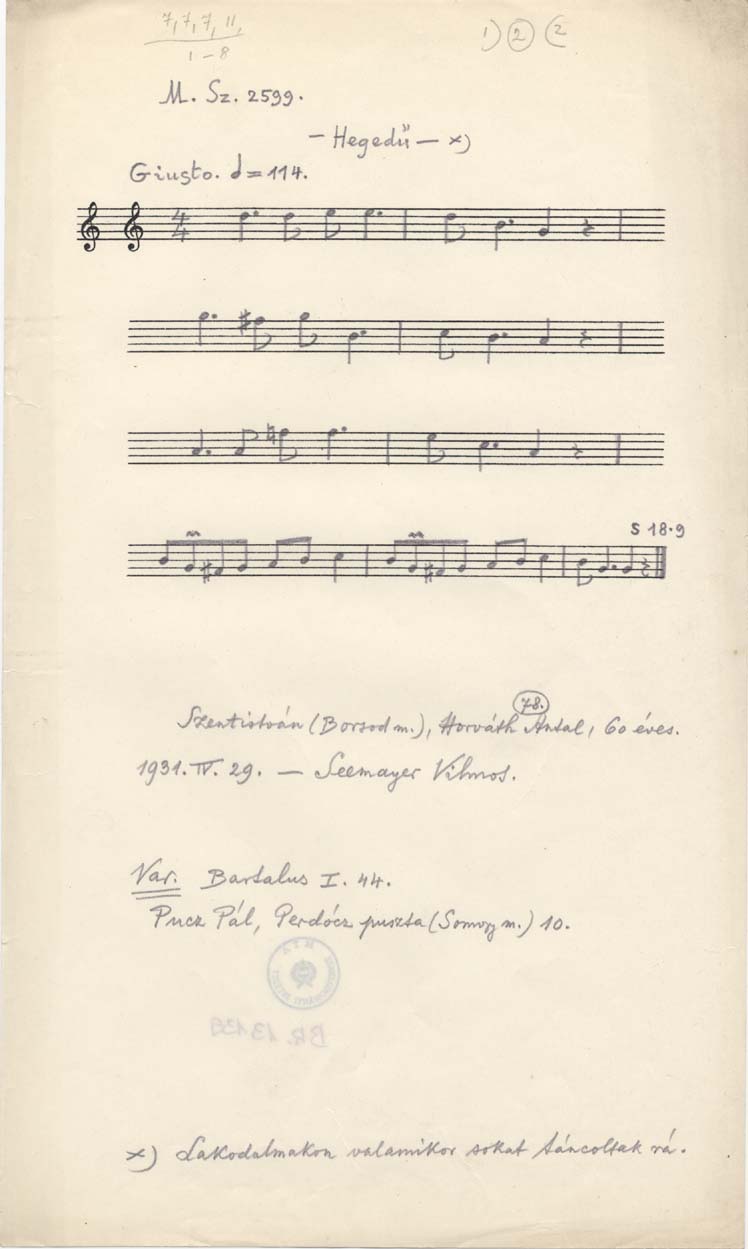 7, 7, 7, 11,
1 – 8
1) 2 (2
M. Sz. 2599.
– Hegedű – x)
Giusto. = 114.
4/4
S 18·9
78.
Szentistván (Borsod m.), Horváth Antal, 60 éves.
1931. IV. 29. — Seemayer Vilmos.
Var. Bartalus I. 44.
Pucz Pál, Perdócz puszta (Somogy m.) 10.
BR. 13139
x) Lakodalmakon valamikor sokat táncoltak rá.